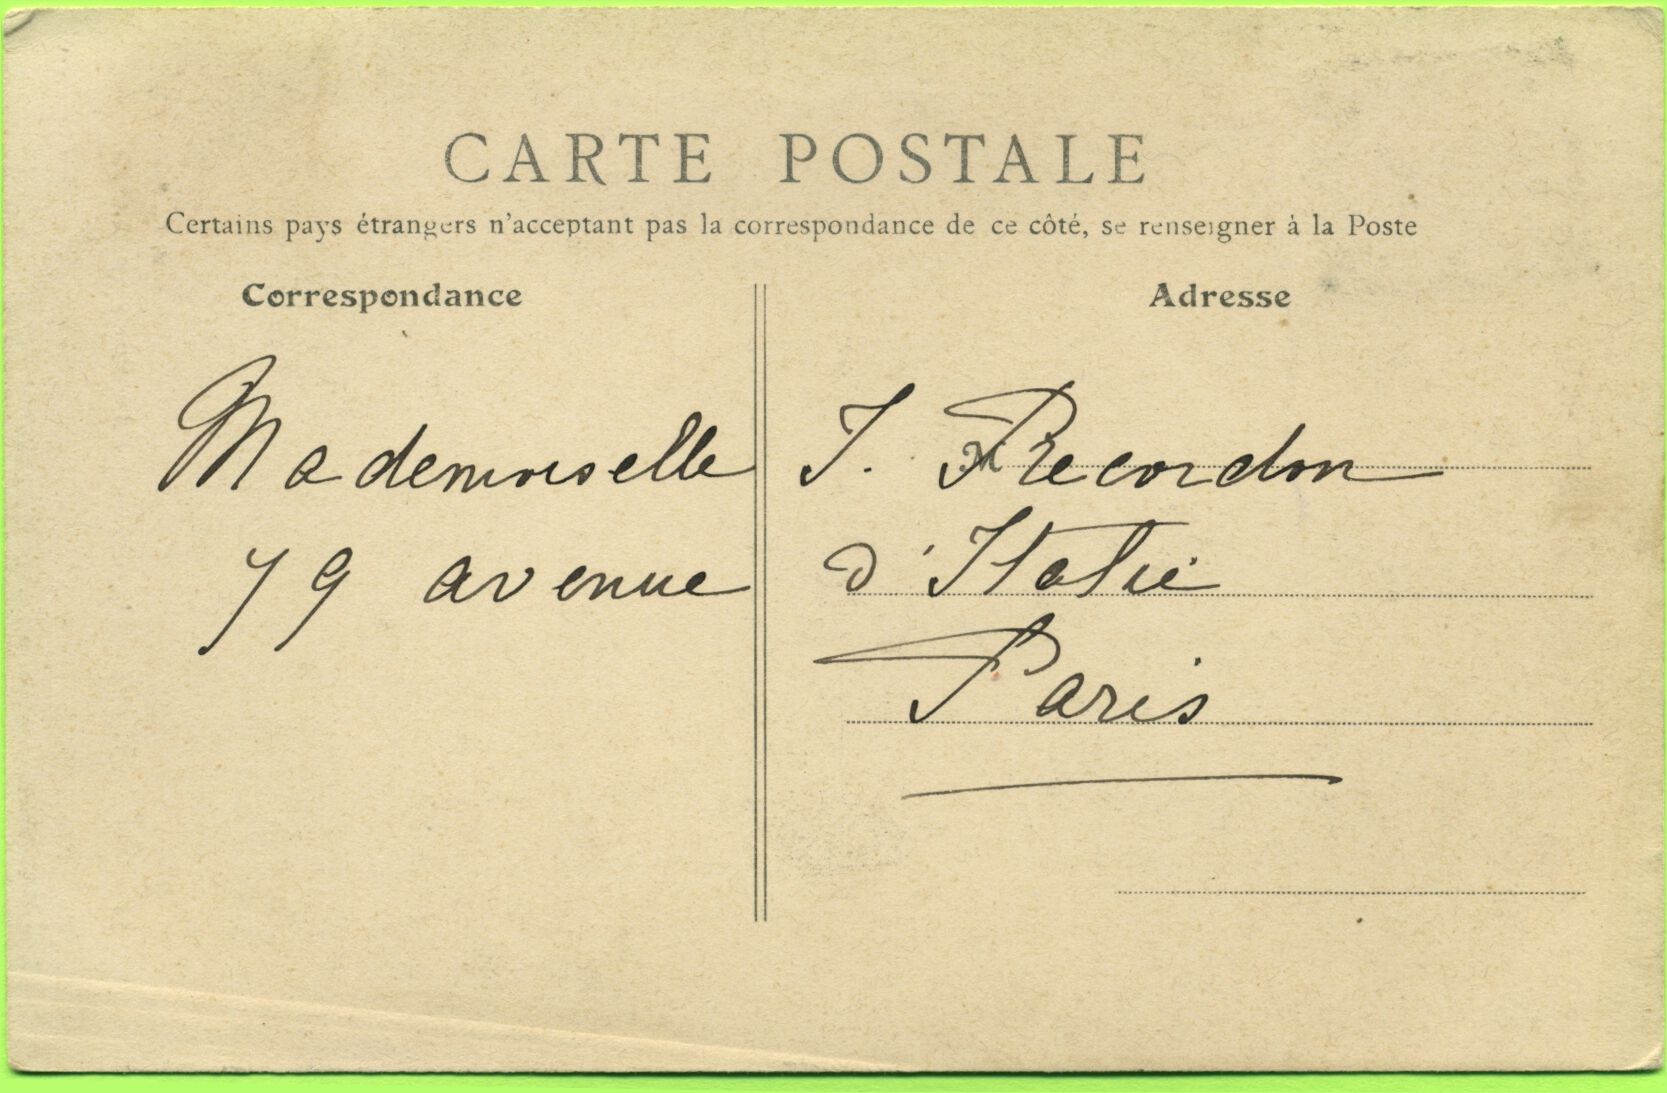 CARTE POSTALE
Certains pays étrangers n'acceptant pas la correspondance de ce côté, se renseigner à la Poste
Correspondance
Adresse
Mademoiselle J. Recordon
79 avenue d'Italie
Paris